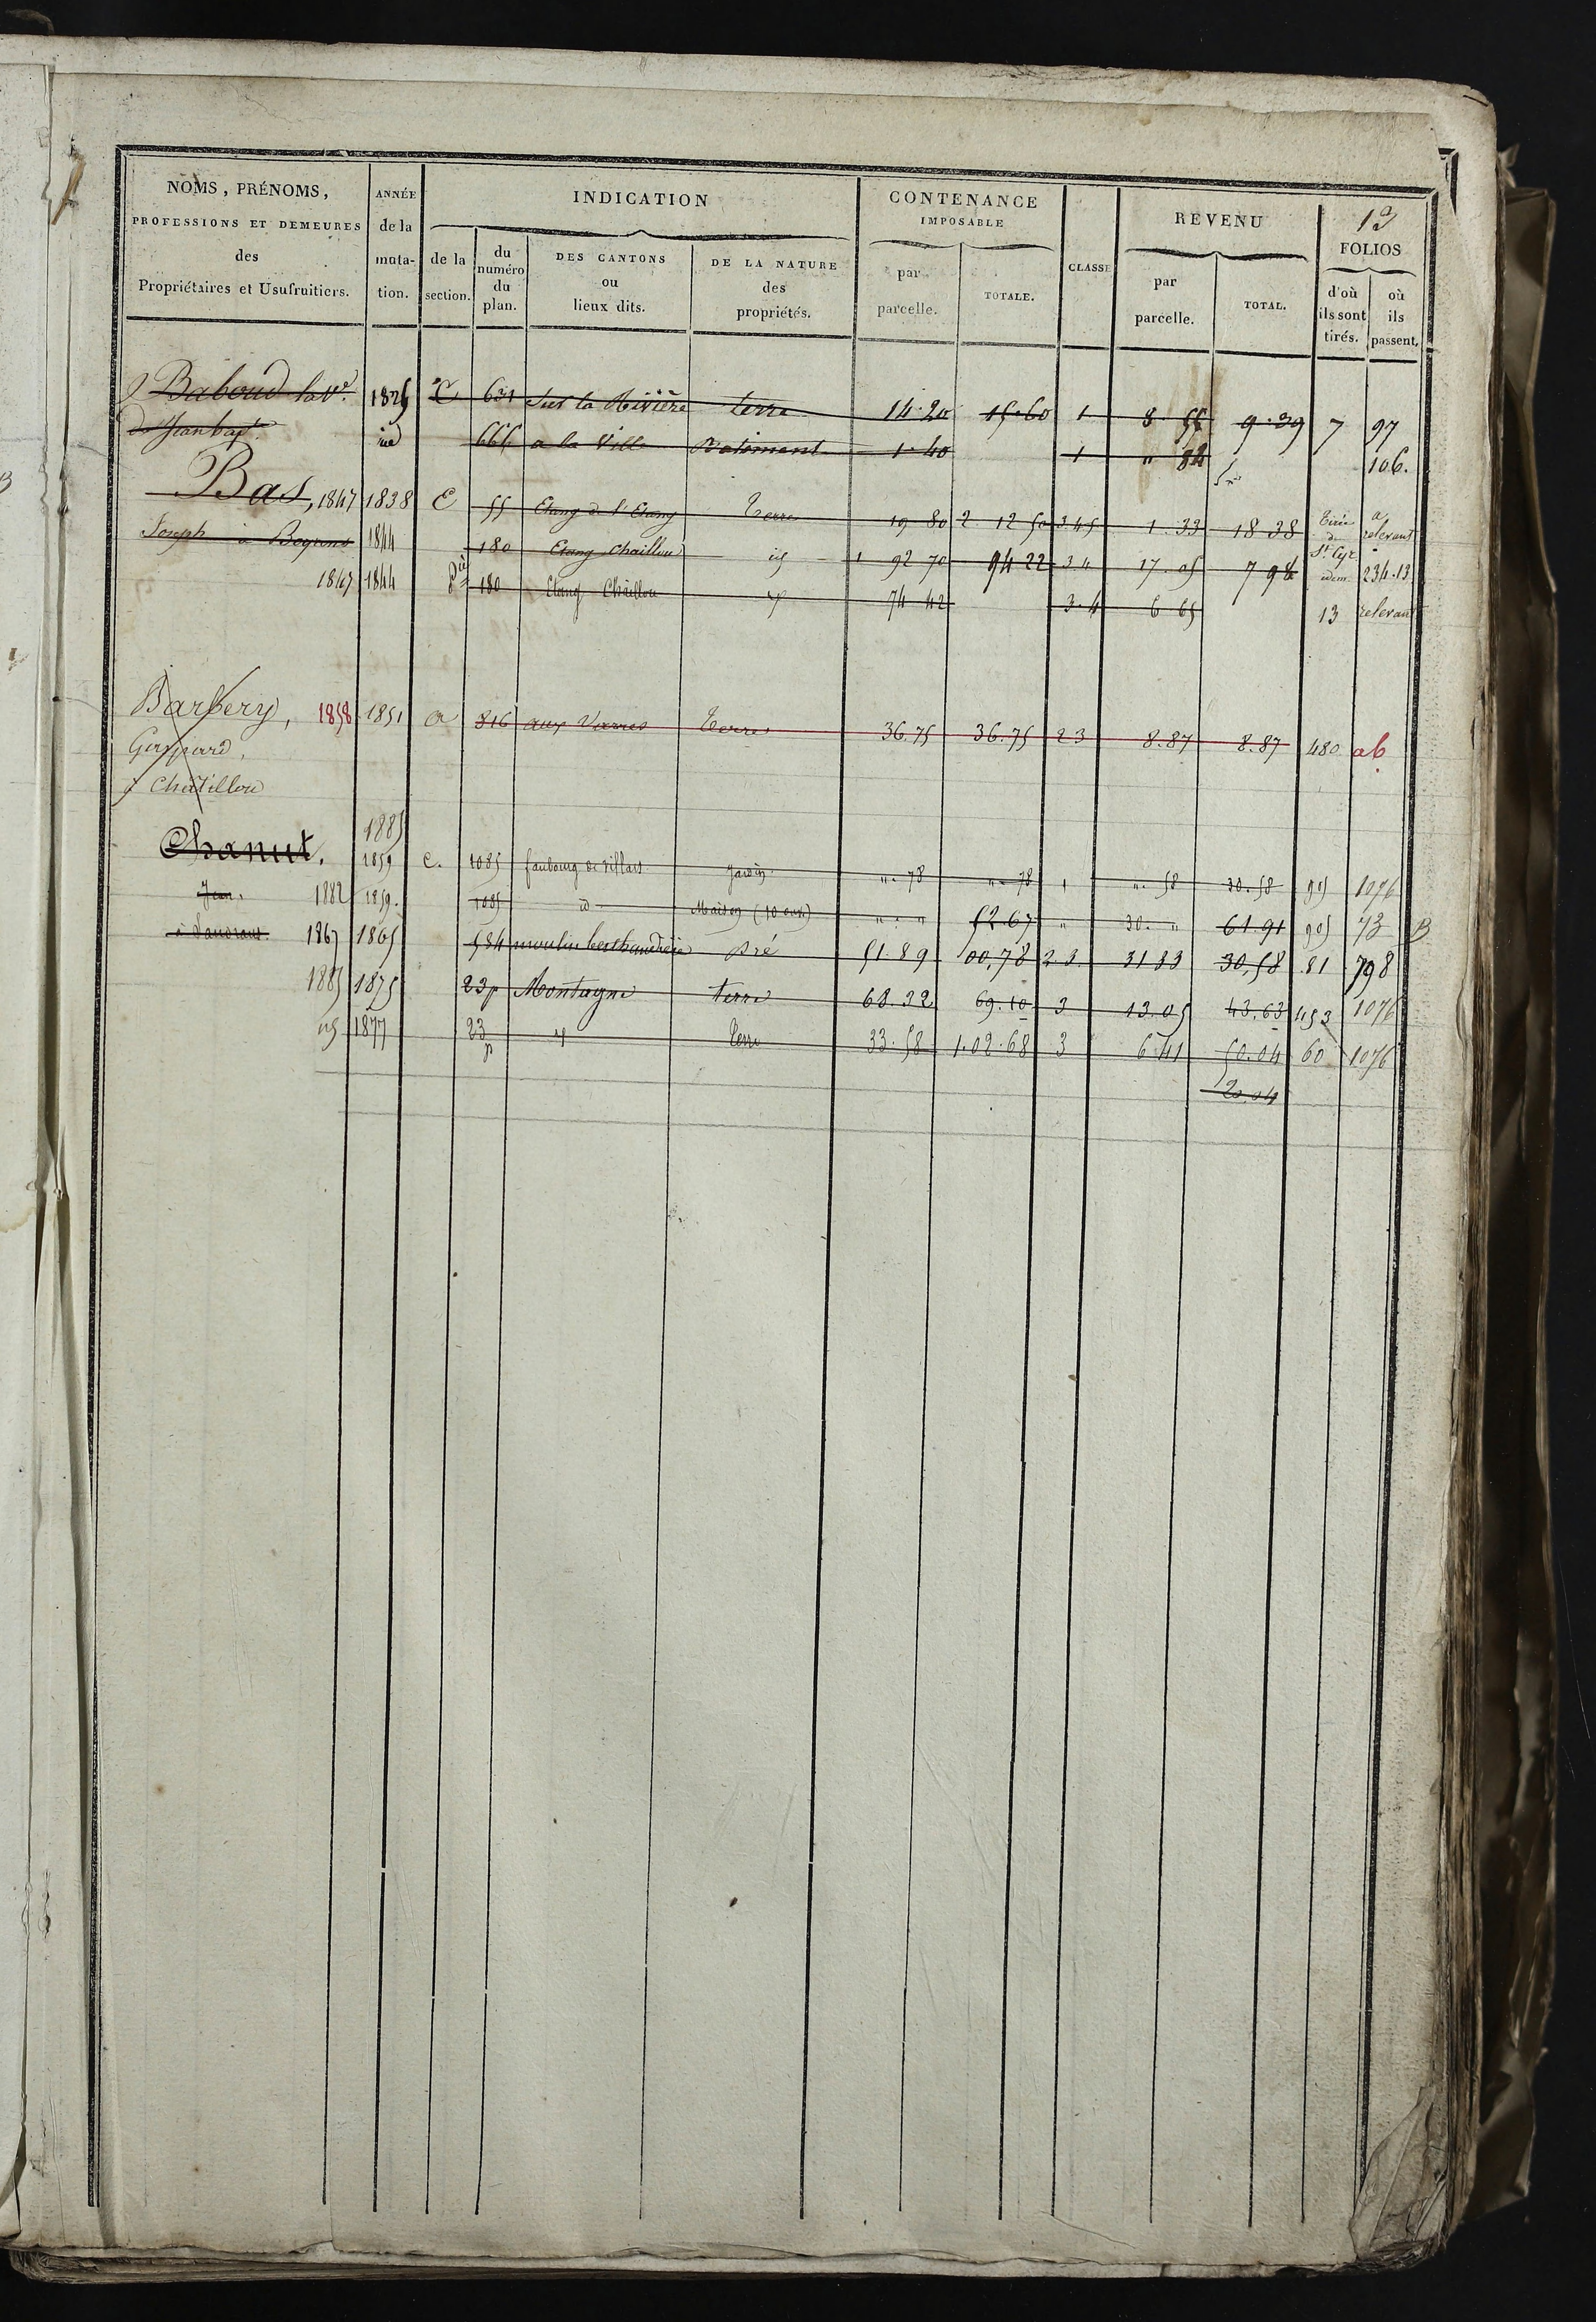 13
NOMS, PRÉNOMS, PROFESSIONS ET DEMEURES des Propriétaires et Usufruitiers.
ANNÉE de la muta-tion.
INDICATION
de la section.
du numéro du plan.
DES CANTONS ou lieux dits.
DE LA NATURE des propriétés.
CONTENANCE IMPOSABLE
par parcelle.
TOTALE.
CLASSE
REVENU
par parcelle.
TOTAL.
FOLIOS
d'où ils sont tirés.
où ils passent.
Baboud la Ve. 1825 C 631 Sur la Rivière terre 14.20 15.60 1 8.55 9.39 7 97
de Jean bapt. id 665 a la Ville Batiment 1.40 1 " 84 106.
Bas, 1847 1838 E 55 Etang de l'Etang Terre 19 80 2 12 50 3.4.5 1.33 18 38 Tirée de St Cyr a relevant
Joseph à 1844 180 Etang Chaillou id 1 92 70 94 22 3 4 17.05 7 98 idem 234.13
1847 1844 180 Etang Chaillou id 74 42 3.4 6 65 13 relevant
Barbery, 1858 1851 a 816 aux Varres Terre 36.75 36.75 2 3 8.87 8.87 480 ab
Gaspard,
à Chatillon
1885
Chanut, 1859 C. 1085 faubourg de villars Jardin ". 78 ". 78 1 ". 58 30.58 1076
Jean, 1882 1859. 1085 id Maison (10 ouv) " " " 52.67 " 30. " 61.91 73 B
à 1867 1865 584 moulin pré 51.89 00,78 2 3 31 33 30,58 81 798
1885 1875 23p Montagne terre 68.32 69.10 3 13.05 43.63 453 1076
id 1877 23p id Terre 33.58 1.02.68 3 6.41 50.04 60 1076
20.04